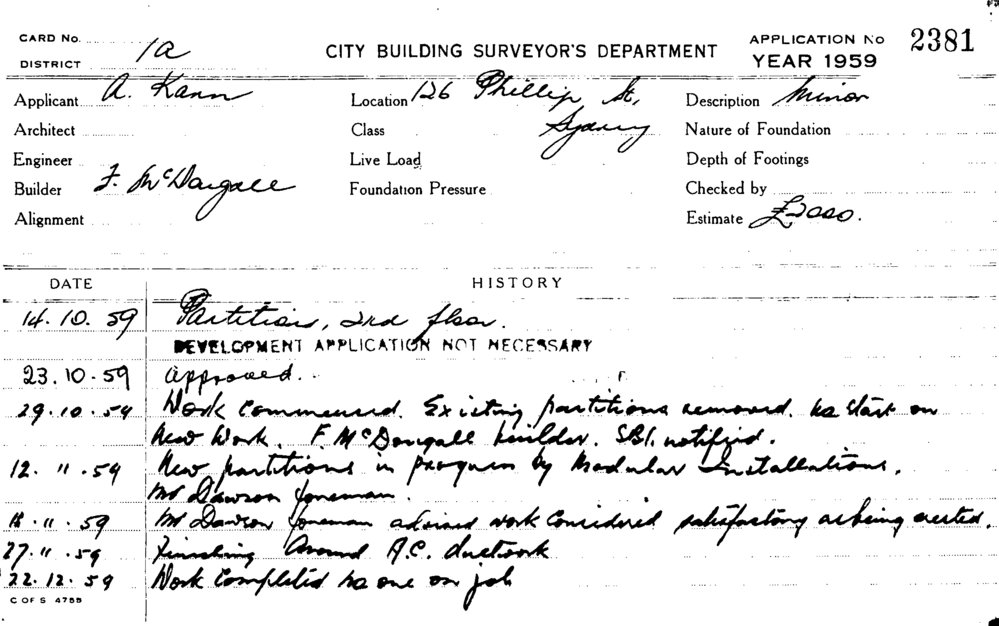 CARD No.
DISTRICT 1a
CITY BUILDING SURVEYOR'S DEPARTMENT
APPLICATION No 2381
YEAR 1959
Applicant A. Kann
Location 126 Phillip St,
Sydney
Description Minor
Architect
Class
Nature of Foundation
Engineer
Live Load
Depth of Footings
Builder F. McDougall
Foundation Pressure
Checked by
Alignment
Estimate £2000.
DATE HISTORY
14.10.59 Partitions, 2nd floor.
DEVELOPMENT APPLICATION NOT NECESSARY
23.10.59 approved.
29.10.59 Work Commenced. Existing partitions removed. No start on
New Work. F. McDougall builder. SBI. notified.
12.11.59 New partitions in progress by Modular Installations.
Mr Dawson foreman.
18.11.59 Mr Dawson foreman advised work considered satisfactory as being erected.
27.11.59 Finishing Around A.C. ductwork
22.12.59 Work Completed No one on job
C OF S 4755